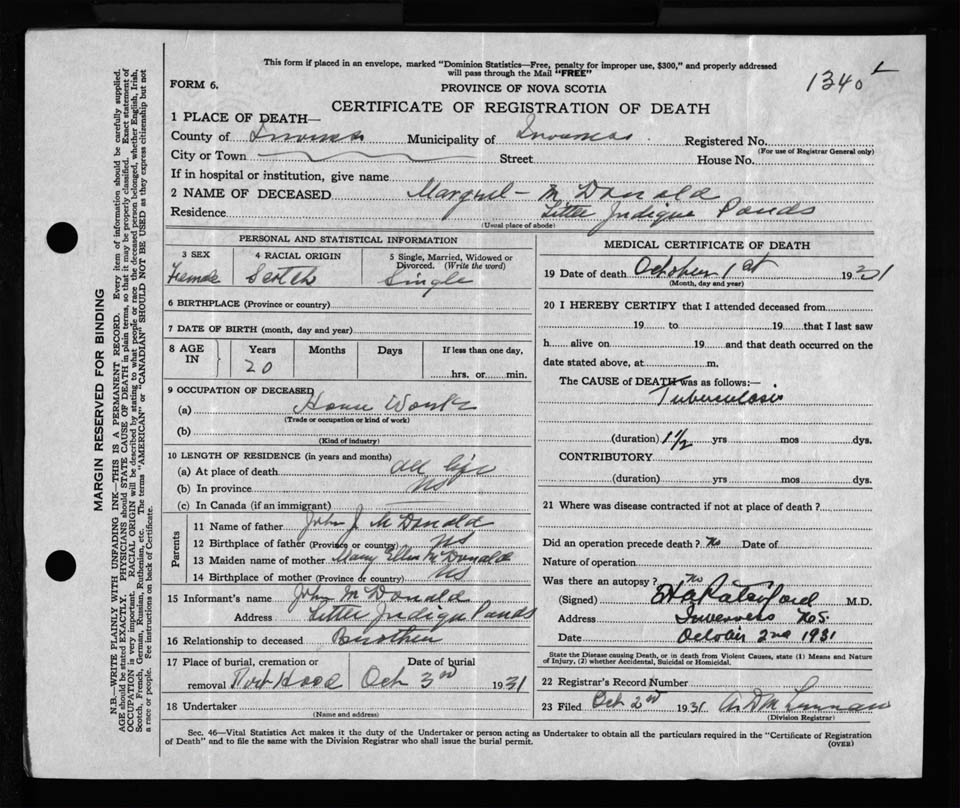 This form if placed in an envelope, marked "Dominion Statistics—Free, penalty for improper use, $300," and properly addressed
will pass through the Mail "FREE"
1340
FORM 6.
PROVINCE OF NOVA SCOTIA
CERTIFICATE OF REGISTRATION OF DEATH
1 PLACE OF DEATH—
County of Inverness Municipality of Inverness Registered No.
(For use of Registrar General only)
City or Town Street House No.
If in hospital or institution, give name
2 NAME OF DECEASED McDonald
Residence Little Judique Ponds
(Usual place of abode)
PERSONAL AND STATISTICAL INFORMATION
3 SEX 4 RACIAL ORIGIN 5 Single, Married, Widowed or
Divorced. (Write the word)
Female Scotch Single
6 BIRTHPLACE (Province or country)
7 DATE OF BIRTH (month, day and year)
8 AGE IN Years Months Days If less than one day,
20 hrs. or min.
9 OCCUPATION OF DECEASED
(a) House Work
(Trade or occupation or kind of work)
(b)
(Kind of industry)
10 LENGTH OF RESIDENCE (in years and months)
(a) At place of death all life
(b) In province NS
(c) In Canada (if an immigrant)
Parents
11 Name of father John J McDonald
12 Birthplace of father (Province or country) NS
13 Maiden name of mother Mary Ellen McDonald
14 Birthplace of mother (Province or country) NS
15 Informant's name John McDonald
Address Little Judique Ponds
16 Relationship to deceased Brother
17 Place of burial, cremation or Date of burial
removal Port Hood Oct 3rd 1931
18 Undertaker
(Name and address)
MEDICAL CERTIFICATE OF DEATH
19 Date of death October 1st 1931
(Month, day and year)
20 I HEREBY CERTIFY that I attended deceased from
19 to 19 that I last saw
h alive on 19 and that death occurred on the
date stated above, at m.
The CAUSE of DEATH was as follows:—
Tuberculosis
(duration) 1 1/2 yrs mos dys.
CONTRIBUTORY
(duration) yrs mos dys.
21 Where was disease contracted if not at place of death?
Did an operation precede death? No Date of
Nature of operation
Was there an autopsy? No
(Signed) M.D.
Address Inverness N.S.
Date October 2nd 1931
State the Disease causing Death, or in death from Violent Causes, state (1) Means and Nature
of Injury, (2) whether Accidental, Suicidal or Homicidal.
22 Registrar's Record Number
23 Filed Oct 2nd 1931
(Division Registrar)
Sec. 46—Vital Statistics Act makes it the duty of the Undertaker or person acting as Undertaker to obtain all the particulars required in the "Certificate of Registration
of Death" and to file the same with the Division Registrar who shall issue the burial permit.
(OVER)
MARGIN RESERVED FOR BINDING
N.B.—WRITE PLAINLY WITH UNFADING INK—THIS IS A PERMANENT RECORD. Every item of information should be carefully supplied.
AGE should be stated EXACTLY. PHYSICIANS should STATE CAUSE OF DEATH in plain terms, so that it may be properly classified. Exact statement of
OCCUPATION is very important. RACIAL ORIGIN will be described by stating to what people or race the deceased person belonged, whether English, Irish,
Scotch, French, German, Russian, Ruthenian, etc. The terms "AMERICAN" or "CANADIAN" SHOULD NOT BE USED as they express citizenship but not
a race or people. See instructions on back of Certificate.